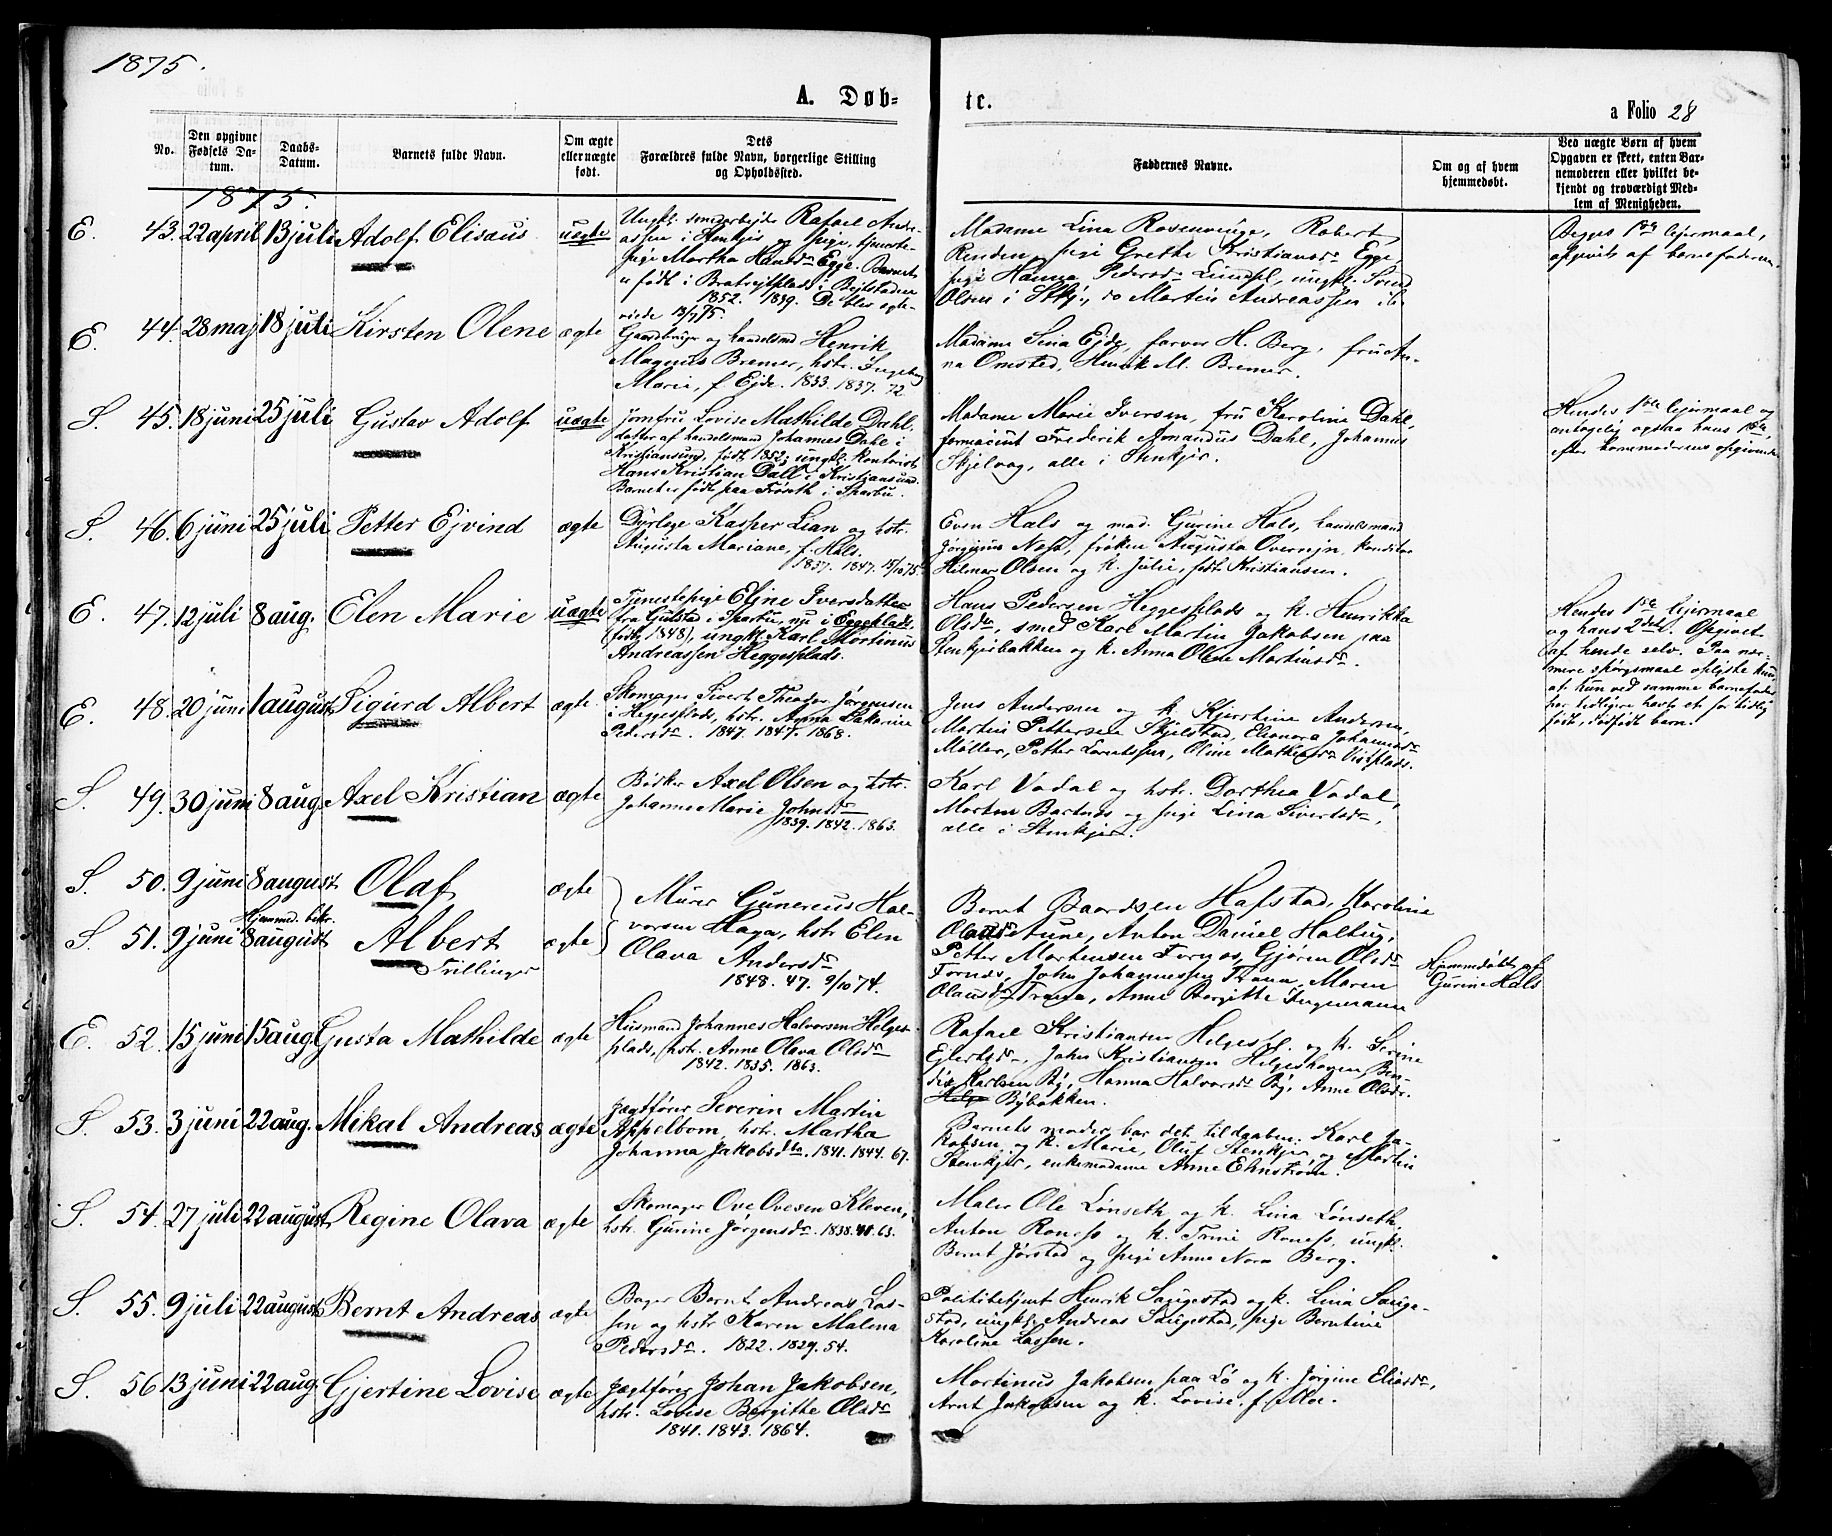 1875.
A. Døb-
te.
a Folio 28
No.
Den opgivne
Fødsels Da-
tum.
Daabs-
Datum.
Barnets fulde Navn.
Om ægte
eller uægte
født.
Dets
Forældres fulde Navn, borgerlige Stilling
og Opholdssted.
Faddernes Navne.
Om og af hvem
hjemmedøbt.
Ved uægte Børn af hvem
Opgaven er skeet, enten Bar-
nemoderen eller hvilket be-
kjendt og troværdigt Med-
lem af Menigheden.
1875.
E. 43. 22 april 13 juli Adolf Elisæus uægte
Rafael Andre-
assen i Stenkjær og pige, tjeneste-
pige Martha Hansdr Egge. Barnet
er født i Bratrejtplads i Bejtstaden
1852. 1839. De blev egte-
viede
Madame Lina Rosenvinge, Robert
pige Grethe Kristiansdr Egge,
pige Hanna Pedersdr Lundspl, ungkl. Svend
Olsen i Stkj., do Martin Andreassen ib.
Begges 1ste lejermaal,
opgivet af barnefaderen.
E. 44. 28 maj 18 juli Kirsten Olene ægte
Gaardbruger og handelsmd Henrik
Magnus Bremer, hstr. Ingeborg
Marie, f. Ejde. 1833. 1837. 72
Madame Lina Ejde, farver H. Berg, fru An-
na Omsted, Henrik M. Bremer.
S. 45. 18 juni 25 juli Gustav Adolf uægte
Jomfru Lovise Mathilde Dahl,
datter af handelsmand Johannes Dahl i
Kristiansund, født 1852; ungkl. kontorist
Hans Kristian Dall i Kristiansund.
Barnet er født paa Frøseth i Sparbu.
Madame Marie Iversen, fru Karoline Dahl,
farmaceut Frederik Amandus Dahl, Johannes
Skjelvag, alle i Stenkjær.
Hendes 1ste lejermaal og
antagelig ogsaa hans 1ste,
efter barnemoderens opgivende
S. 46. 6 juni 25 juli Petter Ejvind ægte
Dyrlæge Kasper Lian og hstr.
Augusta Mariane, f. Hals.
1837. 1847. 18/10 75
Even Hals og mad. Gurine Hals, handelsmand
Jørginus Næss, frøken Augusta Overrejn, konditor
Hilmar Olsen og k. Julie, født Kristiansen.
E. 47. 12 juli 8 aug. Elen Marie uægte
Tjenestepige Eline Iversdatter
fra Gulstad i Sparbu, nu i Eggeplads
(født 1848), ungk. Karl Martinus
Andreassen Heggesplads.
Hans Pedersen Heggesplads og k. Henrikka
Olsdr, smed Karl Martin Jakobsen paa
Stenkjærbakken og k. Anna Olene Martinsdr.
Hendes 1ste lejermaal
og hans 2det. Opgivet
af hende selv. Paa nær-
mere spørgsmaal oplyste hun
at hun ved samme barnefader
har tidligere havt et for tidlig
født, dødfødt barn.
E. 48. 20 juni 1 august Sigurd Albert ægte
Skomager Sivert Theodor Jørgensen
i Heggesplads, hstr. Anna Katarina
Pedersdr. 1847. 1847. 1868.
Jens Andersen og k. Kjerstine Andersen,
Martin Pettersen Skjelstad, Eleonora Johannesdr
Møller, Petter Lorntssen, Oline Mathiasdr Vistplads.
S. 49. 30 juni 8 aug. Axel Kristian ægte
Bødker Axel Olsen og hstr.
Johanne Marie Johnsdr
1839. 1842. 1863.
Karl Vadal og hstr. Dorthea Vadal,
Morten Bartnes og pige Lina Sivertsdr,
alle i Stenkjær.
S. 50. 9 juni 8 august Olaf ægte
Hjemmed. bekr.
S. 51. 9 juni 8 august Albert ægte
Tvillinger
Murer Gunerius Hal-
vorsen Haga, hstr Elen
Olava Andersdr
1848. 47. 9/10 74.
Bernt Baardsen Hafstad, Karoline
Olausdr Aune, Anton Daniel Haltug,
Petter Mortensen Fornes, Gjøren Olsdr
Fornes, John Johannessen Trana, Maren
Olausdr Trana, Anne Bergitte Ingemann
Hjemmedøbt af
Gurine Hals
E. 52. 15 juni 15 aug. Gusta Mathilde ægte
Husmand Johannes Halvorsen Helges-
plads, hstr. Anne Olava Olsdr
1842. 1835. 1863.
Rafael Kristiansen Helgespl. og k. Serine
Ejlertsdr, John Kristiansen Helgeshagen, Ben-
dix Karlsen By, Hanna Halvorsdr By, Anne Olsdr.
Bybakken.
S. 53. 3 juni 22 aug. Mikal Andreas ægte
Jægtfører Severin Martin
Appelbom, hstr. Martha
Johanna Jakobsdtr. 1841. 1844. 67.
Barnets moder bar det til daaben. Karl Ja-
kobsen og k. Marie, Oluf Stenkjær og Martin
Stenkjær, enkemadame Anne Ehnstrøm.
S. 54. 27 juli 22 august Regine Olava ægte
Skomager Ove Ovesen Kleven,
hstr. Gurine Jørgensdr. 1838. 41. 63.
Maler Ole Lønseth og k. Lina Lønseth,
Anton Roness og k. Trine Roness, ungkl.
Bernt Jørstad og pige Anne Nora Berg.
S. 55. 9 juli 22 august Bernt Andreas ægte
Bager Bernt Andreas Las-
sen og hstr Karen Malena
Pedersdr. 1822. 1829. 54.
Politibetjent Henrik Saugestad og k. Lina Sauge-
stad, ungk. Andreas Saugestad, pige Berntine
Karoline Lassen.
S. 56 13 juni 22 aug. Gjertine Lovise ægte
Jægtfører Johan Jakobsen,
hstr. Lovise Bergitte Olsdr
1841. 1843. 1864.
Martinus Jakobsen paa Lø og k. Jørgine Eliasdr,
Arnt Jakobsen og k. Lovise, f. Moe.